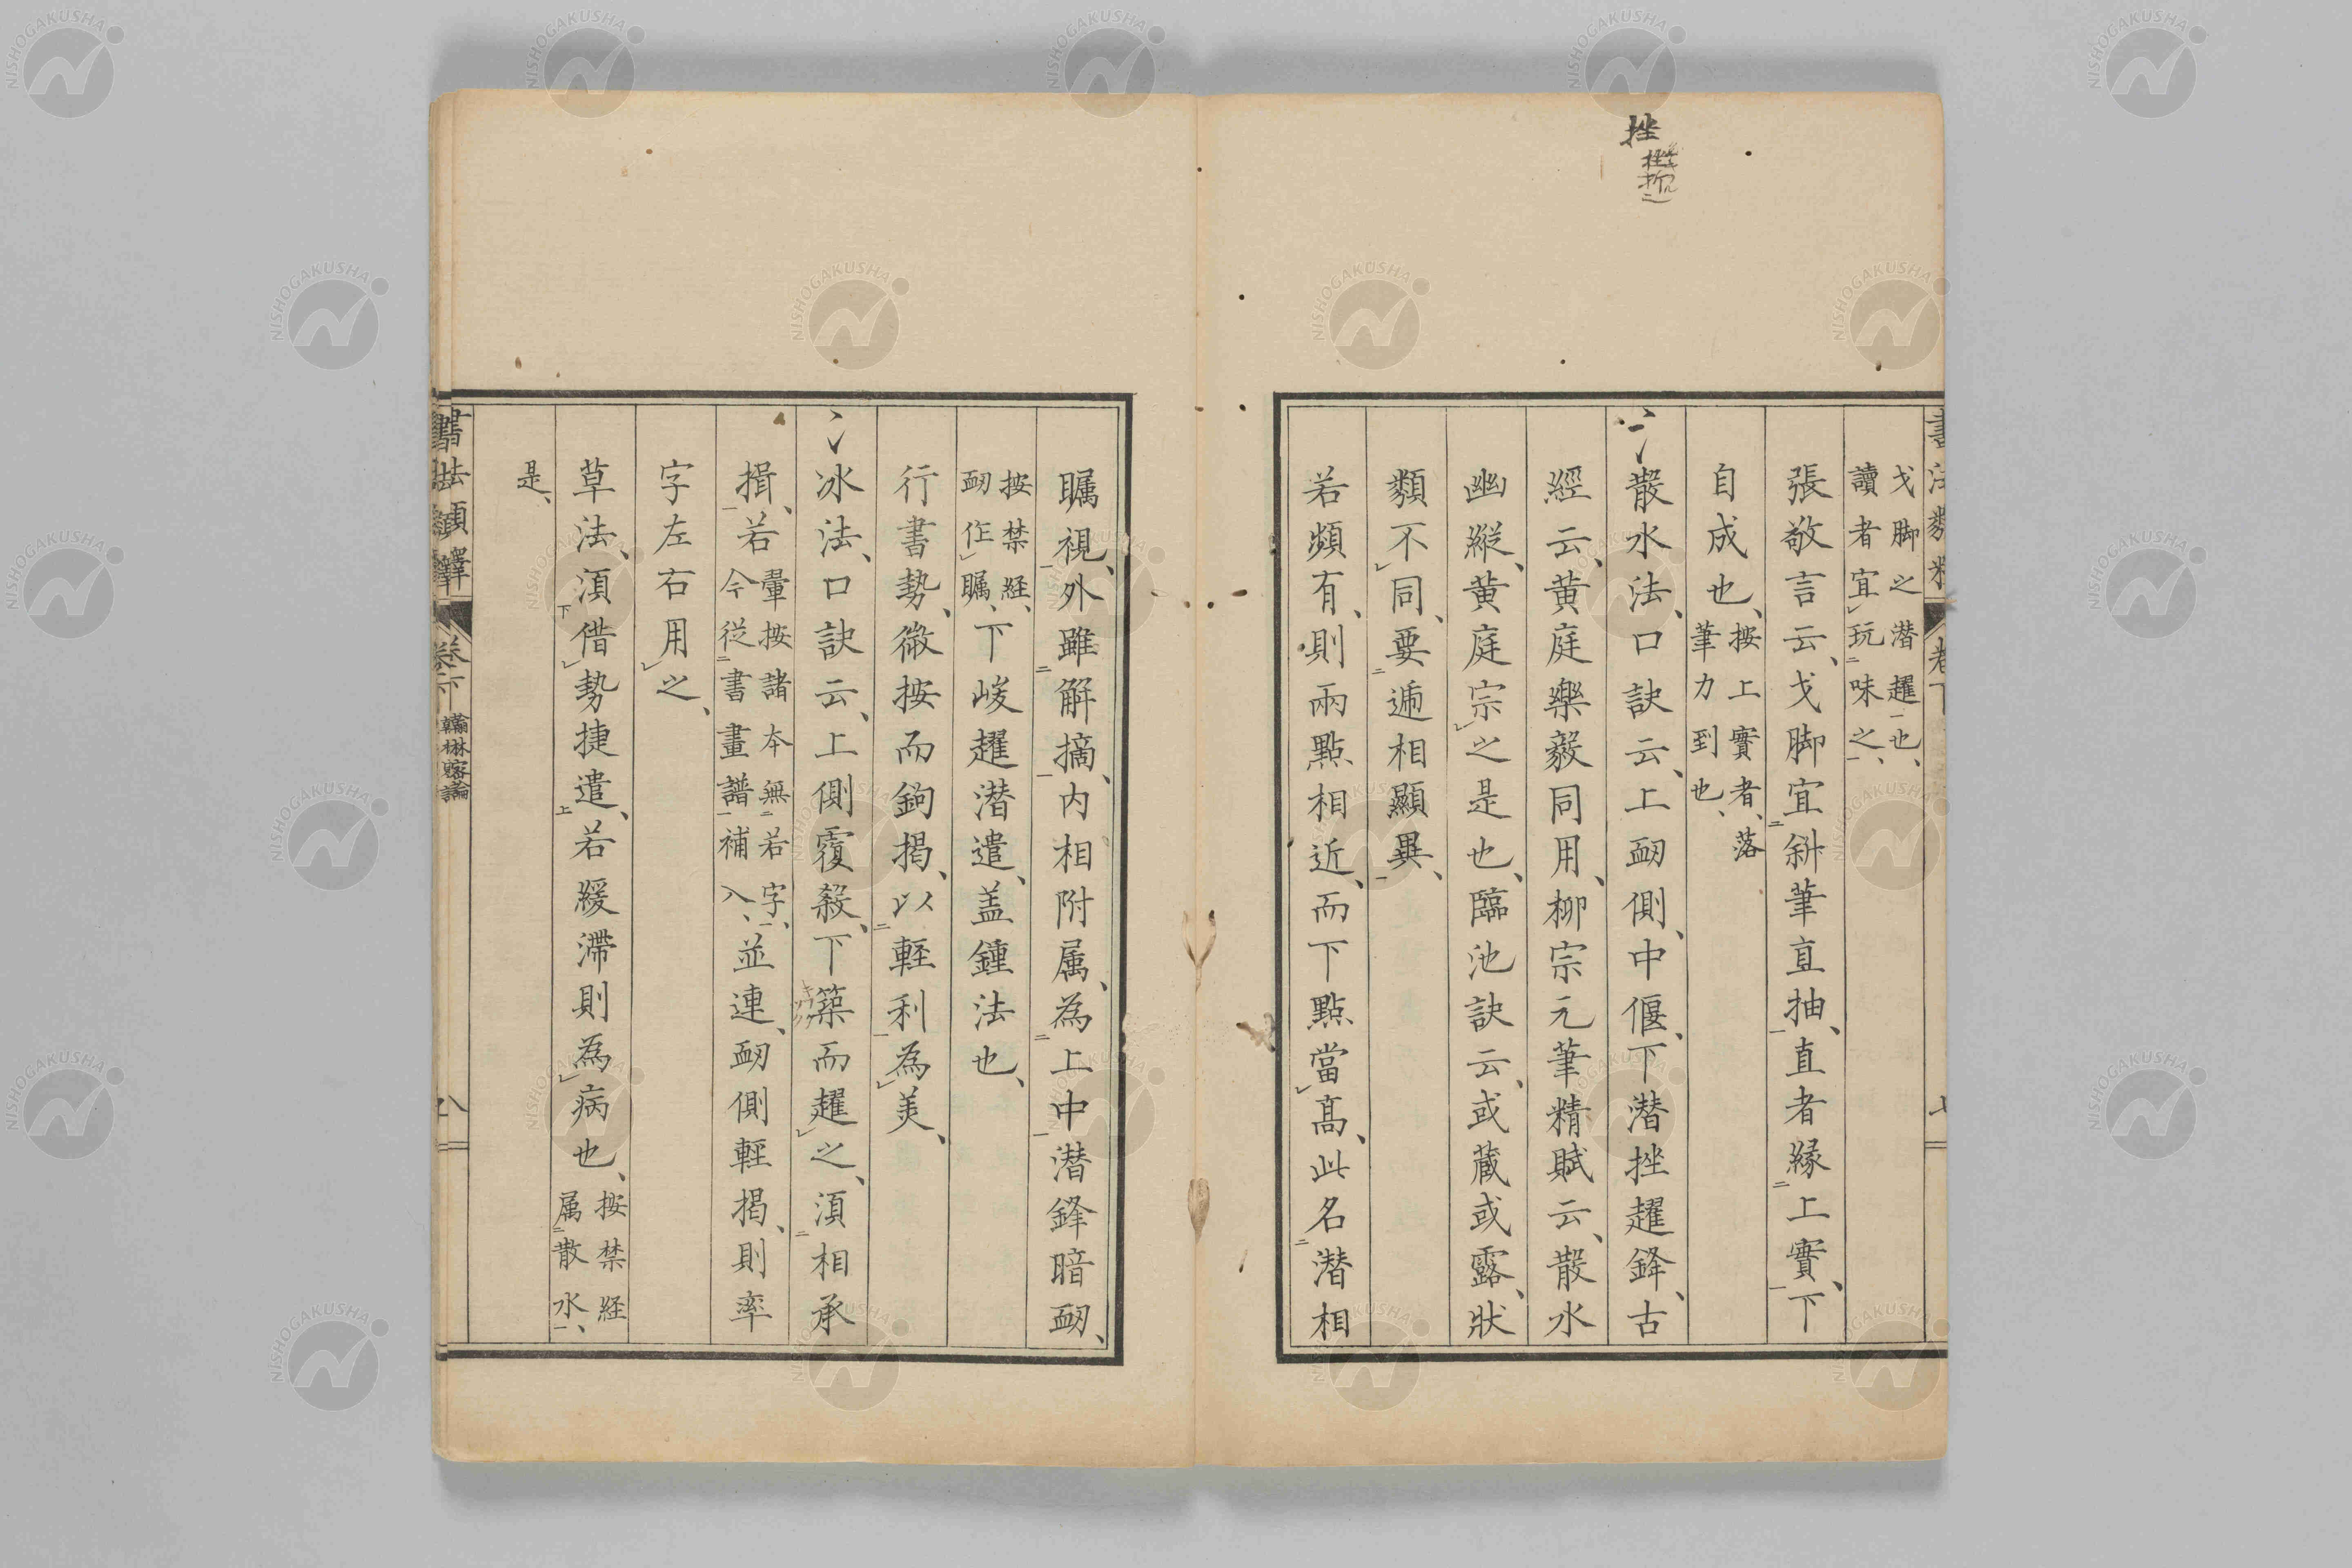 挫
戈脚之潜趯也、
讀者宜玩味之、
張敬言云、戈脚宜斜筆直抽、直者緣上實、下
自成也、按上實者、落
筆力到也、
散水法、口訣云、上衄側、中偃、下潜挫趯鋒、古
經云、黄庭樂毅同用、柳宗元筆精賦云、散水
幽縱、黄庭宗之是也、臨池訣云、或藏或露、狀
類不同、要遞相顯異、
若頻有、則兩點相近、而下點當高、此名潜相
矚視、外雖解摘、内相附属、為上中潜鋒暗衄、
按禁経、
衄作矚、下峻趯潜遣、盖鍾法也、
行書勢、微按而鉤揭、以輕利為美、
冰法、口訣云、上側覆殺、下築而趯之、湏相承
キウ
揖、若
暈按諸本無若字、
今従書畫譜補入、並連、衄側輕揭、則率
字左右用之、
草法、湏借勢捷遣、若緩滯則為病也、按禁経
属散水、
是、
書法類釋 卷下 翰林密論 八